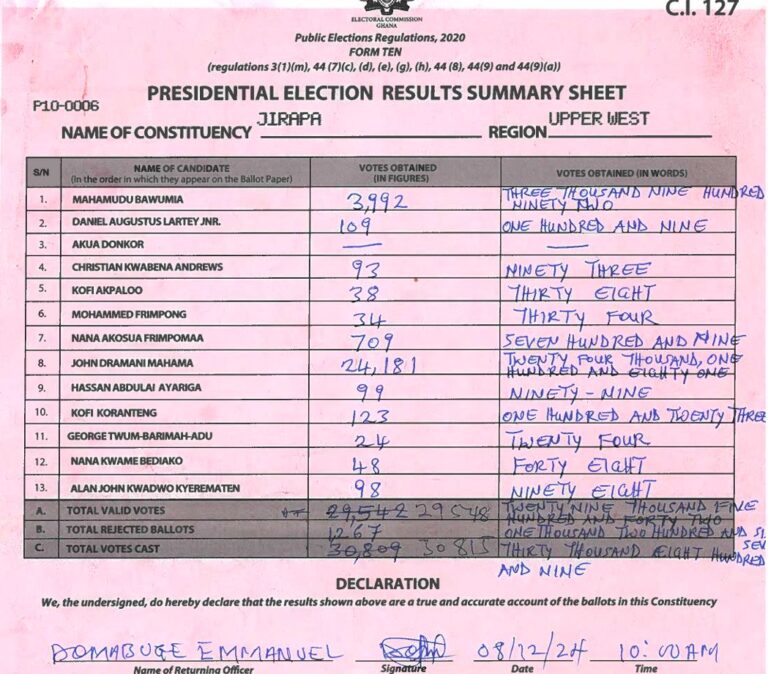 C.I. 127
ELECTORAL COMMISSION
GHANA
Public Elections Regulations, 2020
FORM TEN
(regulations 3(1)(m), 44 (7)(c), (d), (e), (g), (h), 44 (8), 44(9) and 44(9)(a))
PRESIDENTIAL ELECTION RESULTS SUMMARY SHEET
P10-0006
NAME OF CONSTITUENCY JIRAPA REGION UPPER WEST
S/N NAME OF CANDIDATE (In the order in which they appear on the Ballot Paper) VOTES OBTAINED (IN FIGURES) VOTES OBTAINED (IN WORDS)
1. MAHAMUDU BAWUMIA 3,992 THREE THOUSAND NINE HUNDRED NINETY TWO
2. DANIEL AUGUSTUS LARTEY JNR. 109 ONE HUNDRED AND NINE
3. AKUA DONKOR — —
4. CHRISTIAN KWABENA ANDREWS 93 NINETY THREE
5. KOFI AKPALOO 38 THIRTY EIGHT
6. MOHAMMED FRIMPONG 34 THIRTY FOUR
7. NANA AKOSUA FRIMPOMAA 709 SEVEN HUNDRED AND NINE
8. JOHN DRAMANI MAHAMA 24,181 TWENTY FOUR THOUSAND, ONE HUNDRED AND EIGHTY ONE
9. HASSAN ABDULAI AYARIGA 99 NINETY-NINE
10. KOFI KORANTENG 123 ONE HUNDRED AND TWENTY THREE
11. GEORGE TWUM-BARIMAH-ADU 24 TWENTY FOUR
12. NANA KWAME BEDIAKO 48 FORTY EIGHT
13. ALAN JOHN KWADWO KYEREMATEN 98 NINETY EIGHT
A. TOTAL VALID VOTES 29,542 29548 TWENTY NINE THOUSAND FIVE HUNDRED AND FORTY TWO
B. TOTAL REJECTED BALLOTS 1,267 ONE THOUSAND TWO HUNDRED AND SI SEV
C. TOTAL VOTES CAST 30,809 30815 THIRTY THOUSAND EIGHT HUNDRED AND NINE
DECLARATION
We, the undersigned, do hereby declare that the results shown above are a true and accurate account of the ballots in this Constituency
DOMABUGE EMMANUEL 08/12/24 10:00AM
Name of Returning Officer Signature Date Time